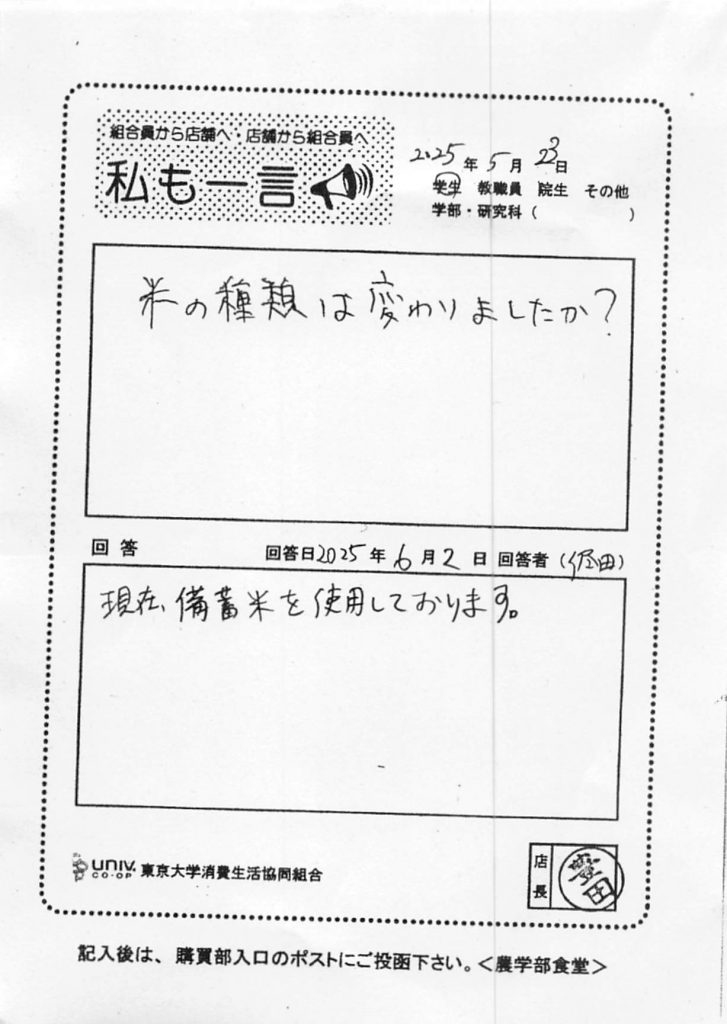 組合員から店舗へ・店舗から組合員へ
私も一言
2025年5月23日
学生 教職員 院生 その他
学部・研究科( )
米の種類は変わりましたか?
回答 回答日2025年6月2日 回答者( 田)
現在、備蓄米を使用しております。
UNIV. CO-OP 東京大学消費生活協同組合
店長 田
記入後は、購買部入口のポストにご投函下さい。<農学部食堂>